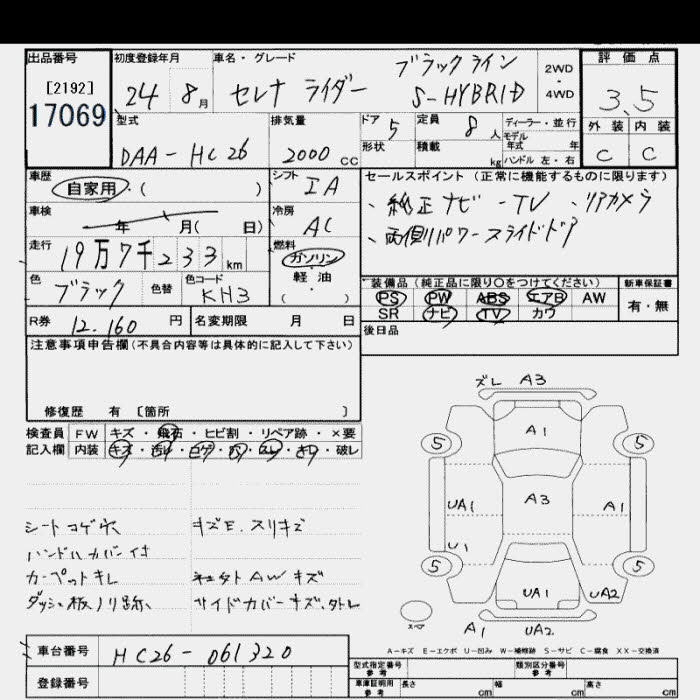 出品番号 初度登録年月 車名・グレード 評価点
[2192]
17069
24 8月 セレナ ライダー ブラックライン S-HYBRID 2WD・4WD 3.5
型式 排気量 ドア 定員 ディーラー・並行 外装 内装
DAA-HC26 2000cc 5 8人 モデル年式 年 C C
形状 積載 kg ハンドル 左・右
車歴 シフト セールスポイント(正常に機能するものに限ります)
自家用・( ) IA
、純正ナビ-TV 、リアカメラ
車検 年 月( 日) 冷房 AC
、両側パワースライドドア
走行 19万7千233km 燃料 ガソリン・軽油・( )
装備品(純正品に限り○をつけてください) 新車保証書
色 ブラック 色替 色コード KH3
PS PW ABS エアB AW 有・無
SR ナビ TV カワ
R券 12.160円 名変期限 月 日
後日品
注意事項申告欄(不具合内容等は具体的に記入して下さい)
修復歴 有 〔箇所 〕
検査員 FW キズ・飛石・ヒビ割・リペア跡・×要
記入欄 内装 キズ・汚れ・コゲ・穴・スレ・キレ・破レ
シートコゲ穴 キズE.スリキズ
ハンドルカバー付
カーペットキレ AWキズ
ダッシュ板ノリ跡 サイドカバーキズ、タトレ
ズレ A3
A1
5 5
UA1 A3 A1
U1
5 5
UA1 UA2
スペア
A1 UA2
A-キズ E-エクボ U-凹み W-補修跡 S-サビ C-腐食 XX-交換済
車台番号 HC26-061320
型式指定番号 参考 類別区分番号 参考
登録番号
車庫証明用 参考 長さ cm 幅 cm 高さ cm